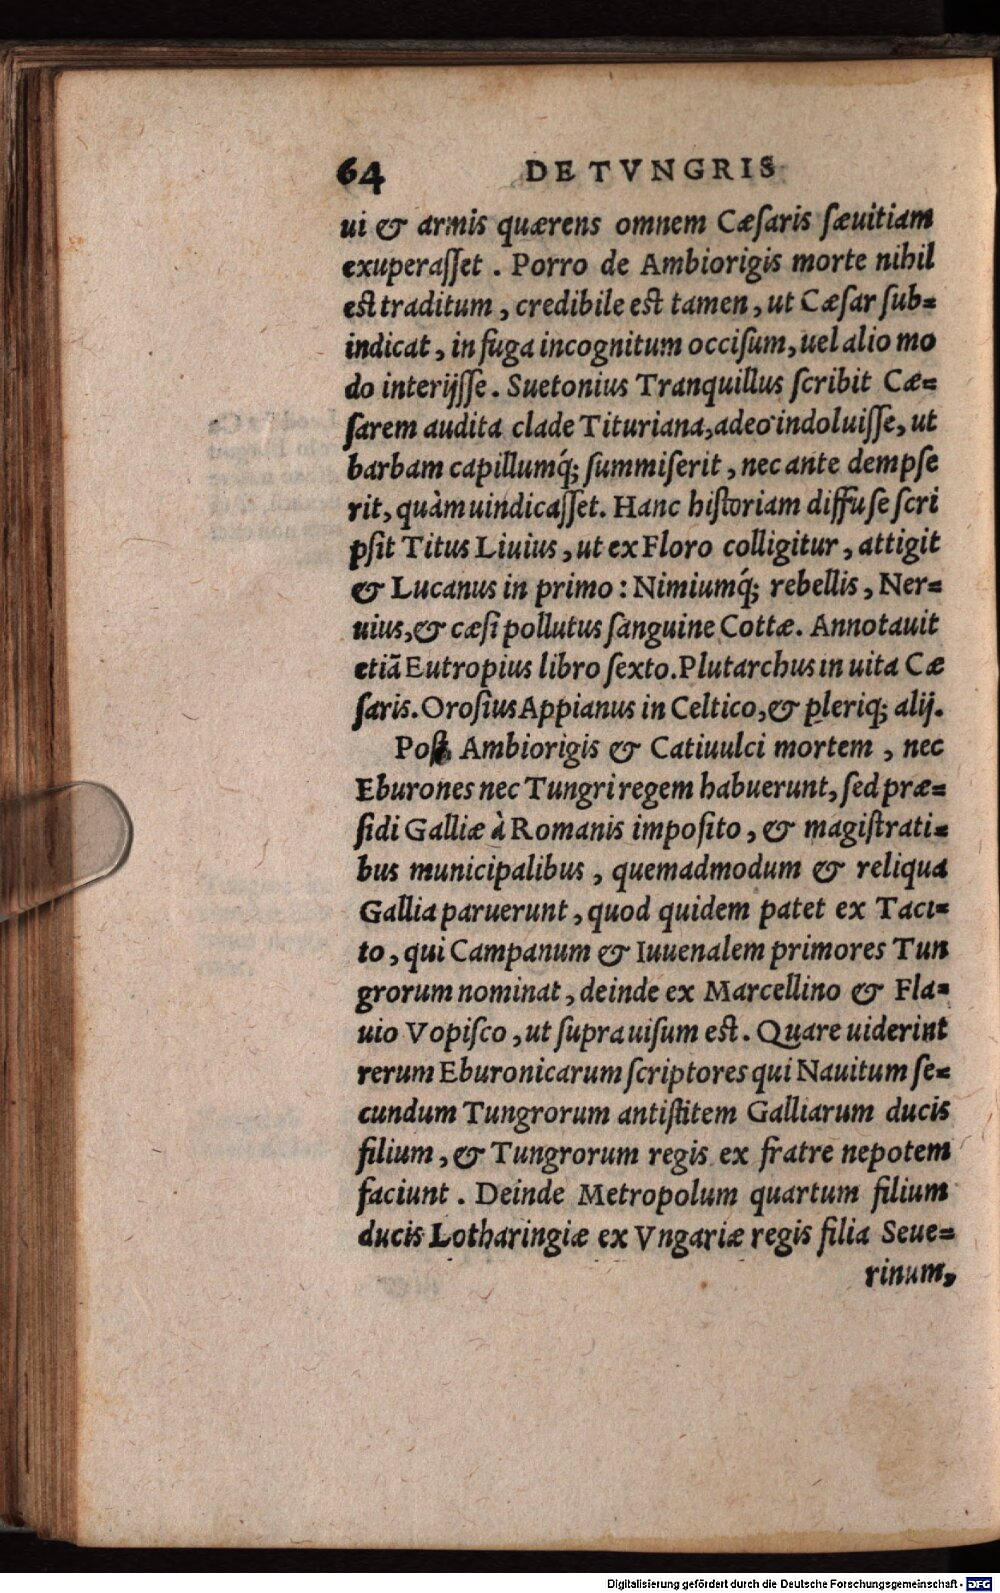 64 DE TVNGRIS
ui & armis quærens omnem Cæſaris ſæuitiam
exuperaſſet. Porro de Ambiorigis morte nihil
eſt traditum, credibile eſt tamen, ut Cæſar ſub=
indicat, in fuga incognitum occiſum, uel alio mo
do interijſſe. Suetonius Tranquillus ſcribit Cæ=
ſarem audita clade Tituriana, adeò indoluiſſe, ut
barbam capillumq́; ſummiſerit, nec ante dempſe
rit, quàm uindicaſſet. Hanc hiſtoriam diffuſe ſcri
pſit Titus Liuius, ut ex Floro colligitur, attigit
& Lucanus in primo: Nimiumq́; rebellis, Ner=
uius, & cæſi pollutus ſanguine Cottæ. Annotauit
etiã Eutropius libro ſexto. Plutarchus in uita Cæ
ſaris. Oroſius Appianus in Celtico, & pleriq; alij.
Poſt Ambiorigis & Catiuulci mortem, nec
Eburones nec Tungri regem habuerunt, ſed præ=
ſidi Galliæ à Romanis impoſito, & magiſtrati=
bus municipalibus, quemadmodum & reliqua
Gallia paruerunt, quod quidem patet ex Taci=
to, qui Campanum & Iuuenalem primores Tun
grorum nominat, deinde ex Marcellino & Fla=
uio Vopiſco, ut ſupra uiſum eſt. Quare uiderint
rerum Eburonicarum ſcriptores qui Nauitum ſe=
cundum Tungrorum antiſtitem Galliarum ducis
filium, & Tungrorum regis ex fratre nepotem
faciunt. Deinde Metropolum quartum filium
ducis Lotharingiæ ex Vngariæ regis filia Seue=
rinum,
Digitalisierung gefördert durch die Deutsche Forschungsgemeinschaft - DFG